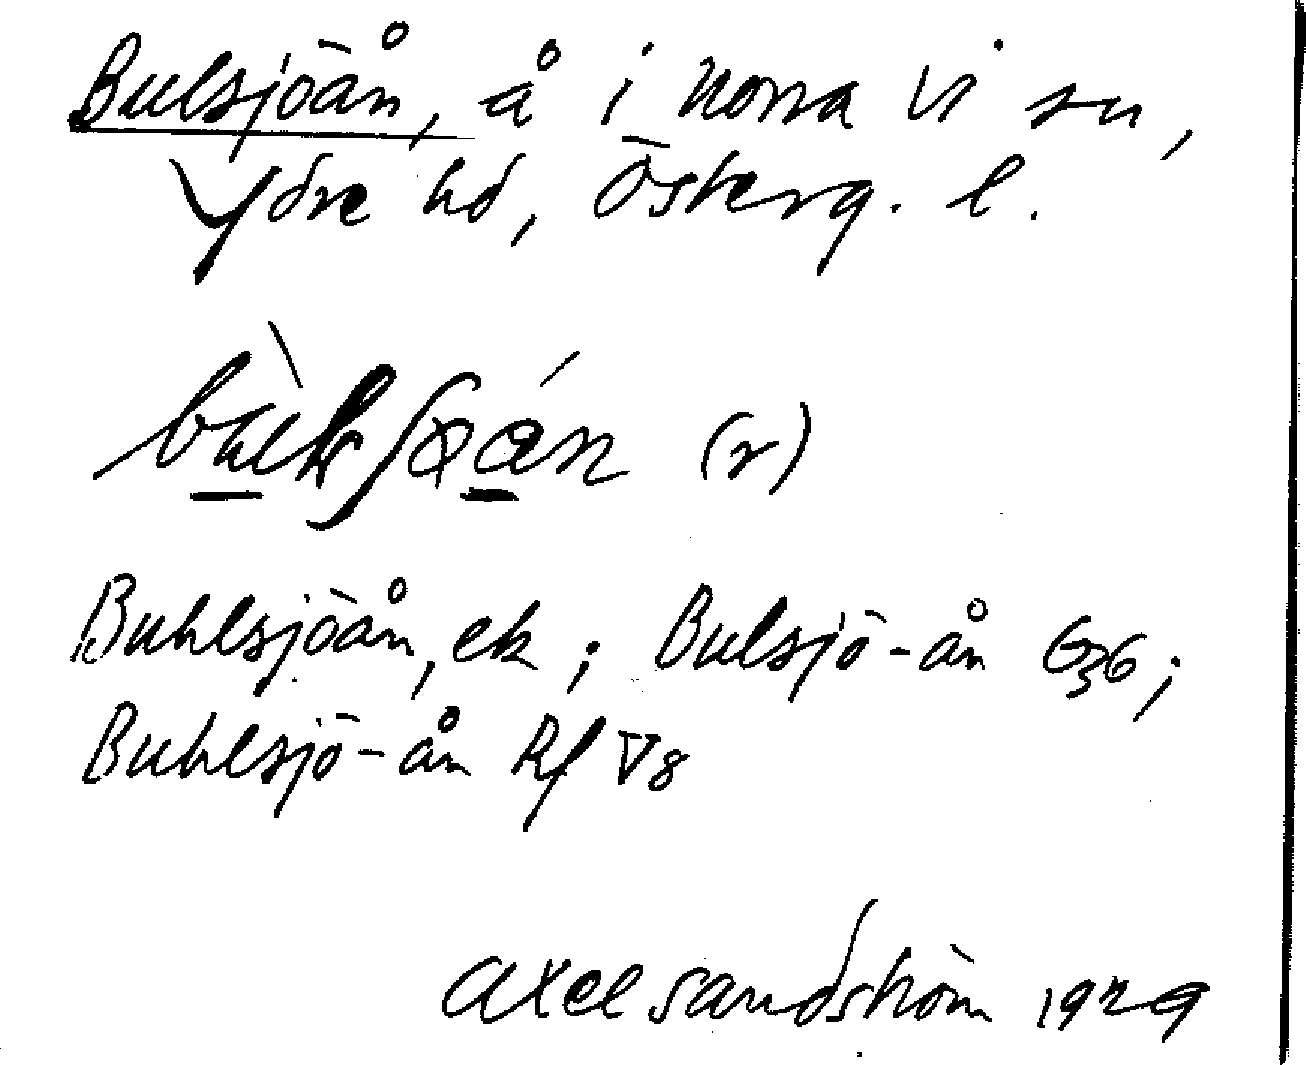 Bulsjöån, å i Norra Vi sn,
Ydre hd, Österg. l.
(r)
Buhlsjöån, ek; Bulsjö-ån G36;
Buhlsjö-ån Rf V8
Axel Sandström 1929